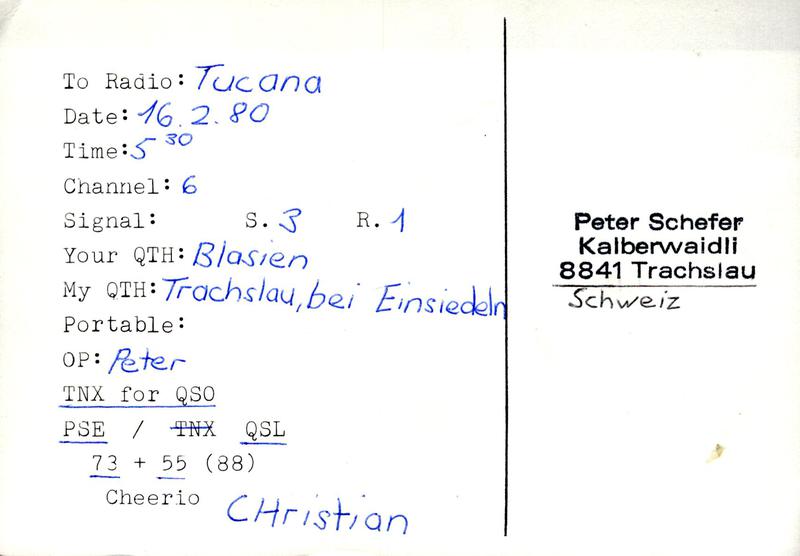 To Radio: Tucana
Date: 16.2.80
Time: 5 30
Channel: 6
Signal: S. 3 R. 1
Your QTH: Blasien
My QTH: Trachslau, bei Einsiedeln
Portable:
OP: Peter
TNX for QSO
PSE / TNX QSL
73 + 55 (88)
Cheerio CHristian
Peter Schefer
Kalberwaidli
8841 Trachslau
Schweiz